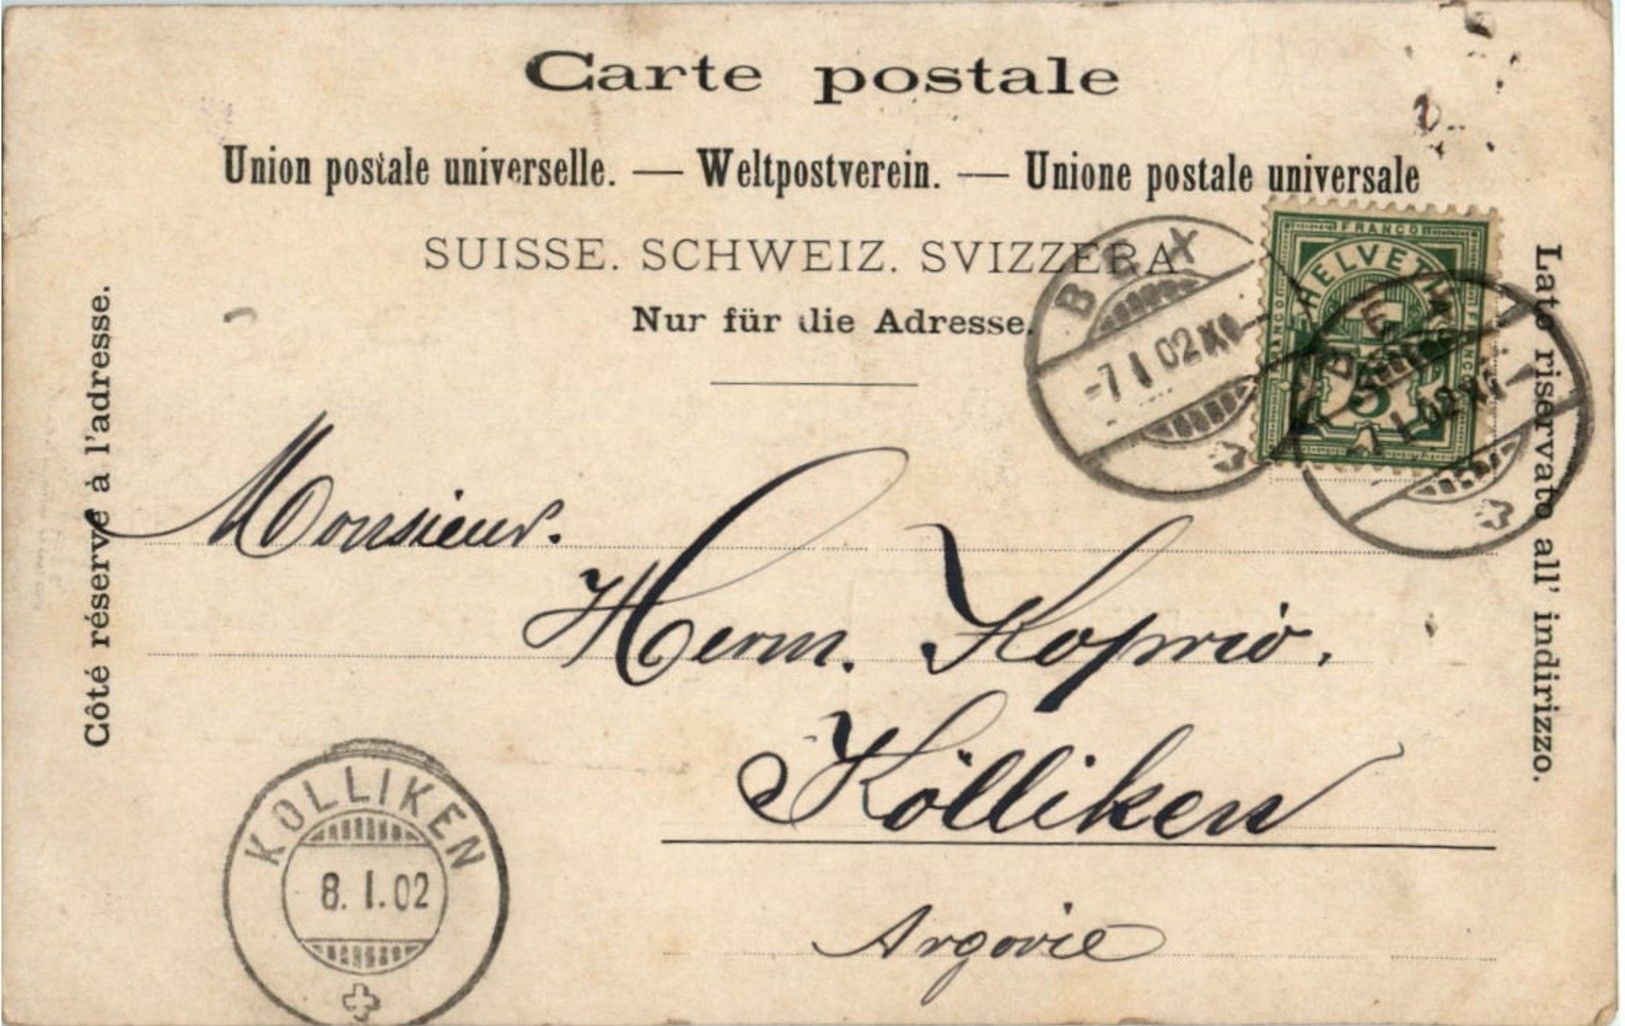 Carte postale
Union postale universelle. — Weltpostverein. — Unione postale universale
SUISSE. SCHWEIZ. SVIZZERA
Nur für die Adresse.
Côté réservé à l'adresse.
Lato riservato all' indirizzo.
FRANCO
HELVETIA
FRANCO
FRANCO
5
BEX
-7 I 02 XI
BEX
-7 I 02 XI
Monsieur.
Herm.
Kölliken
Argovie
KÖLLIKEN
8. I. 02